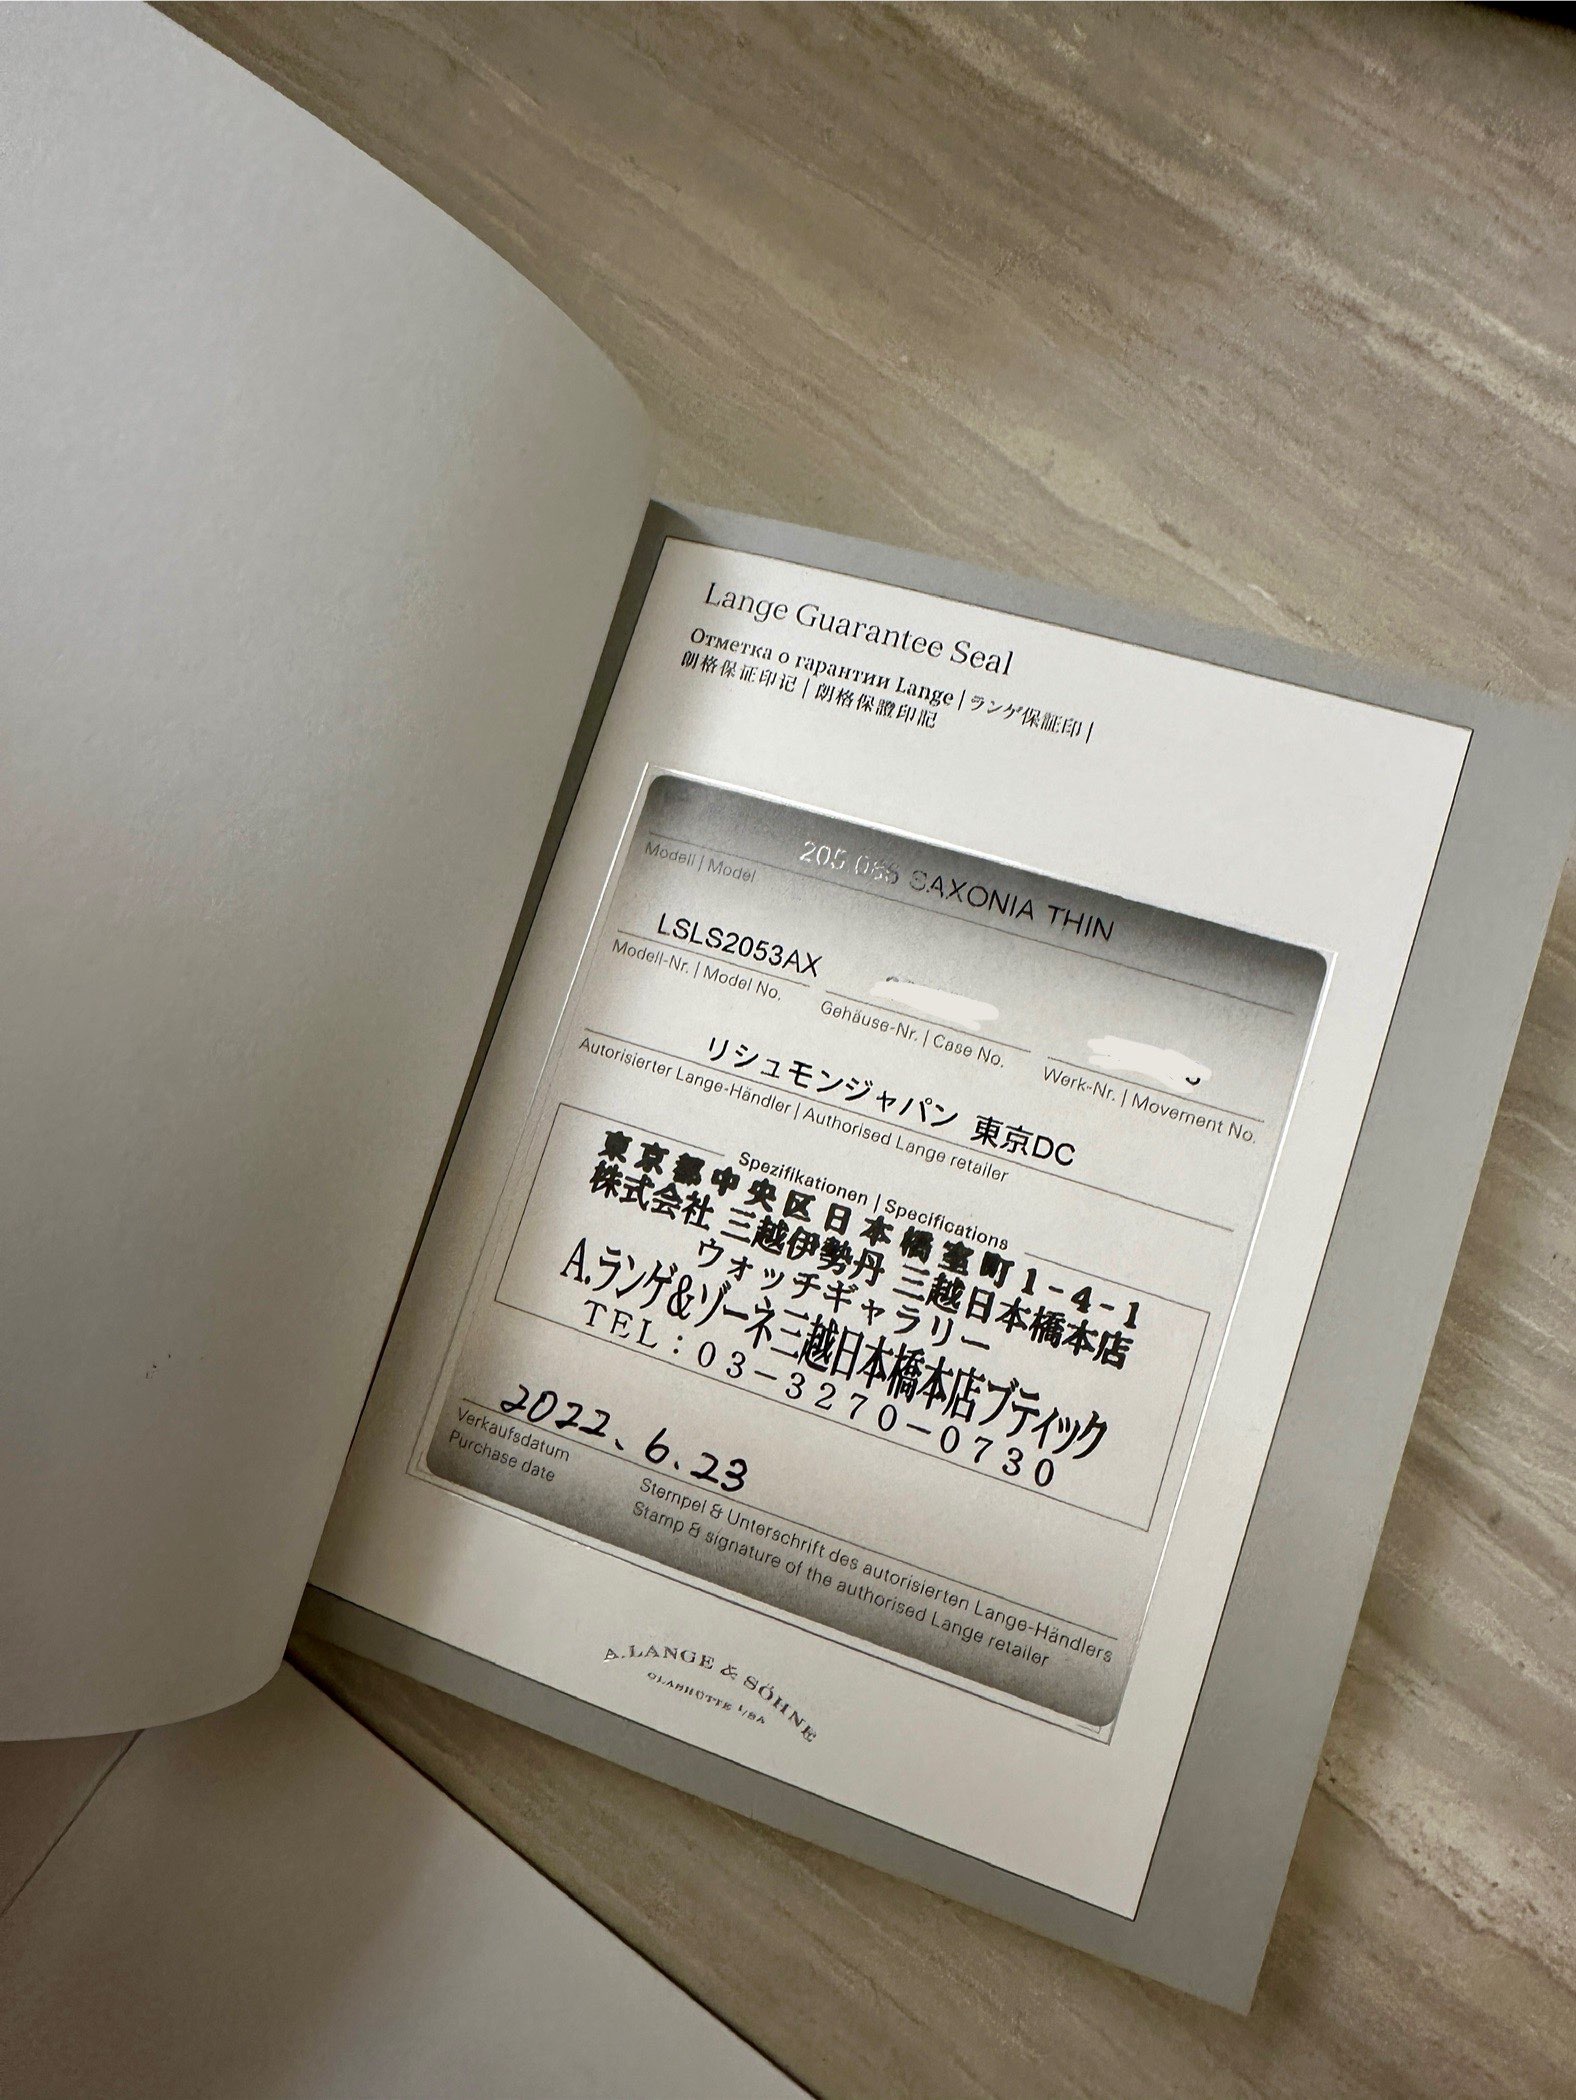 Lange Guarantee Seal
Отметка о гарантии Lange | ランゲ保証印 |
朗格保证印记 | 朗格保證印記
SAXONIA THIN
Modell | Model
LSLS2053AX
Modell-Nr. | Model No.
Gehäuse-Nr. | Case No.
Werk-Nr. | Movement No.
リシュモンジャパン 東京DC
Autorisierter Lange-Händler | Authorised Lange retailer
Spezifikationen | Specifications
東京都中央区日本橋室町1-4-1
株式会社 三越伊勢丹 三越日本橋本店
ウォッチギャラリー
A.ランゲ&ゾーネ三越日本橋本店ブティック
TEL:03-3270-0730
2022、6.23
Verkaufsdatum
Purchase date
Stempel & Unterschrift des autorisierten Lange-Händlers
Stamp & signature of the authorised Lange retailer
A. LANGE & SÖHNE
GLASHÜTTE I/SA